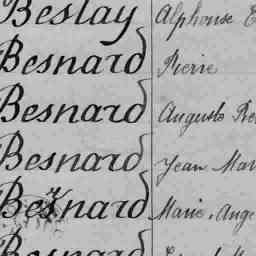 Beslay Alphonse
Besnard Pierre
Besnard Auguste
Besnard Jean
Besnard Marie, Ange
Besnard